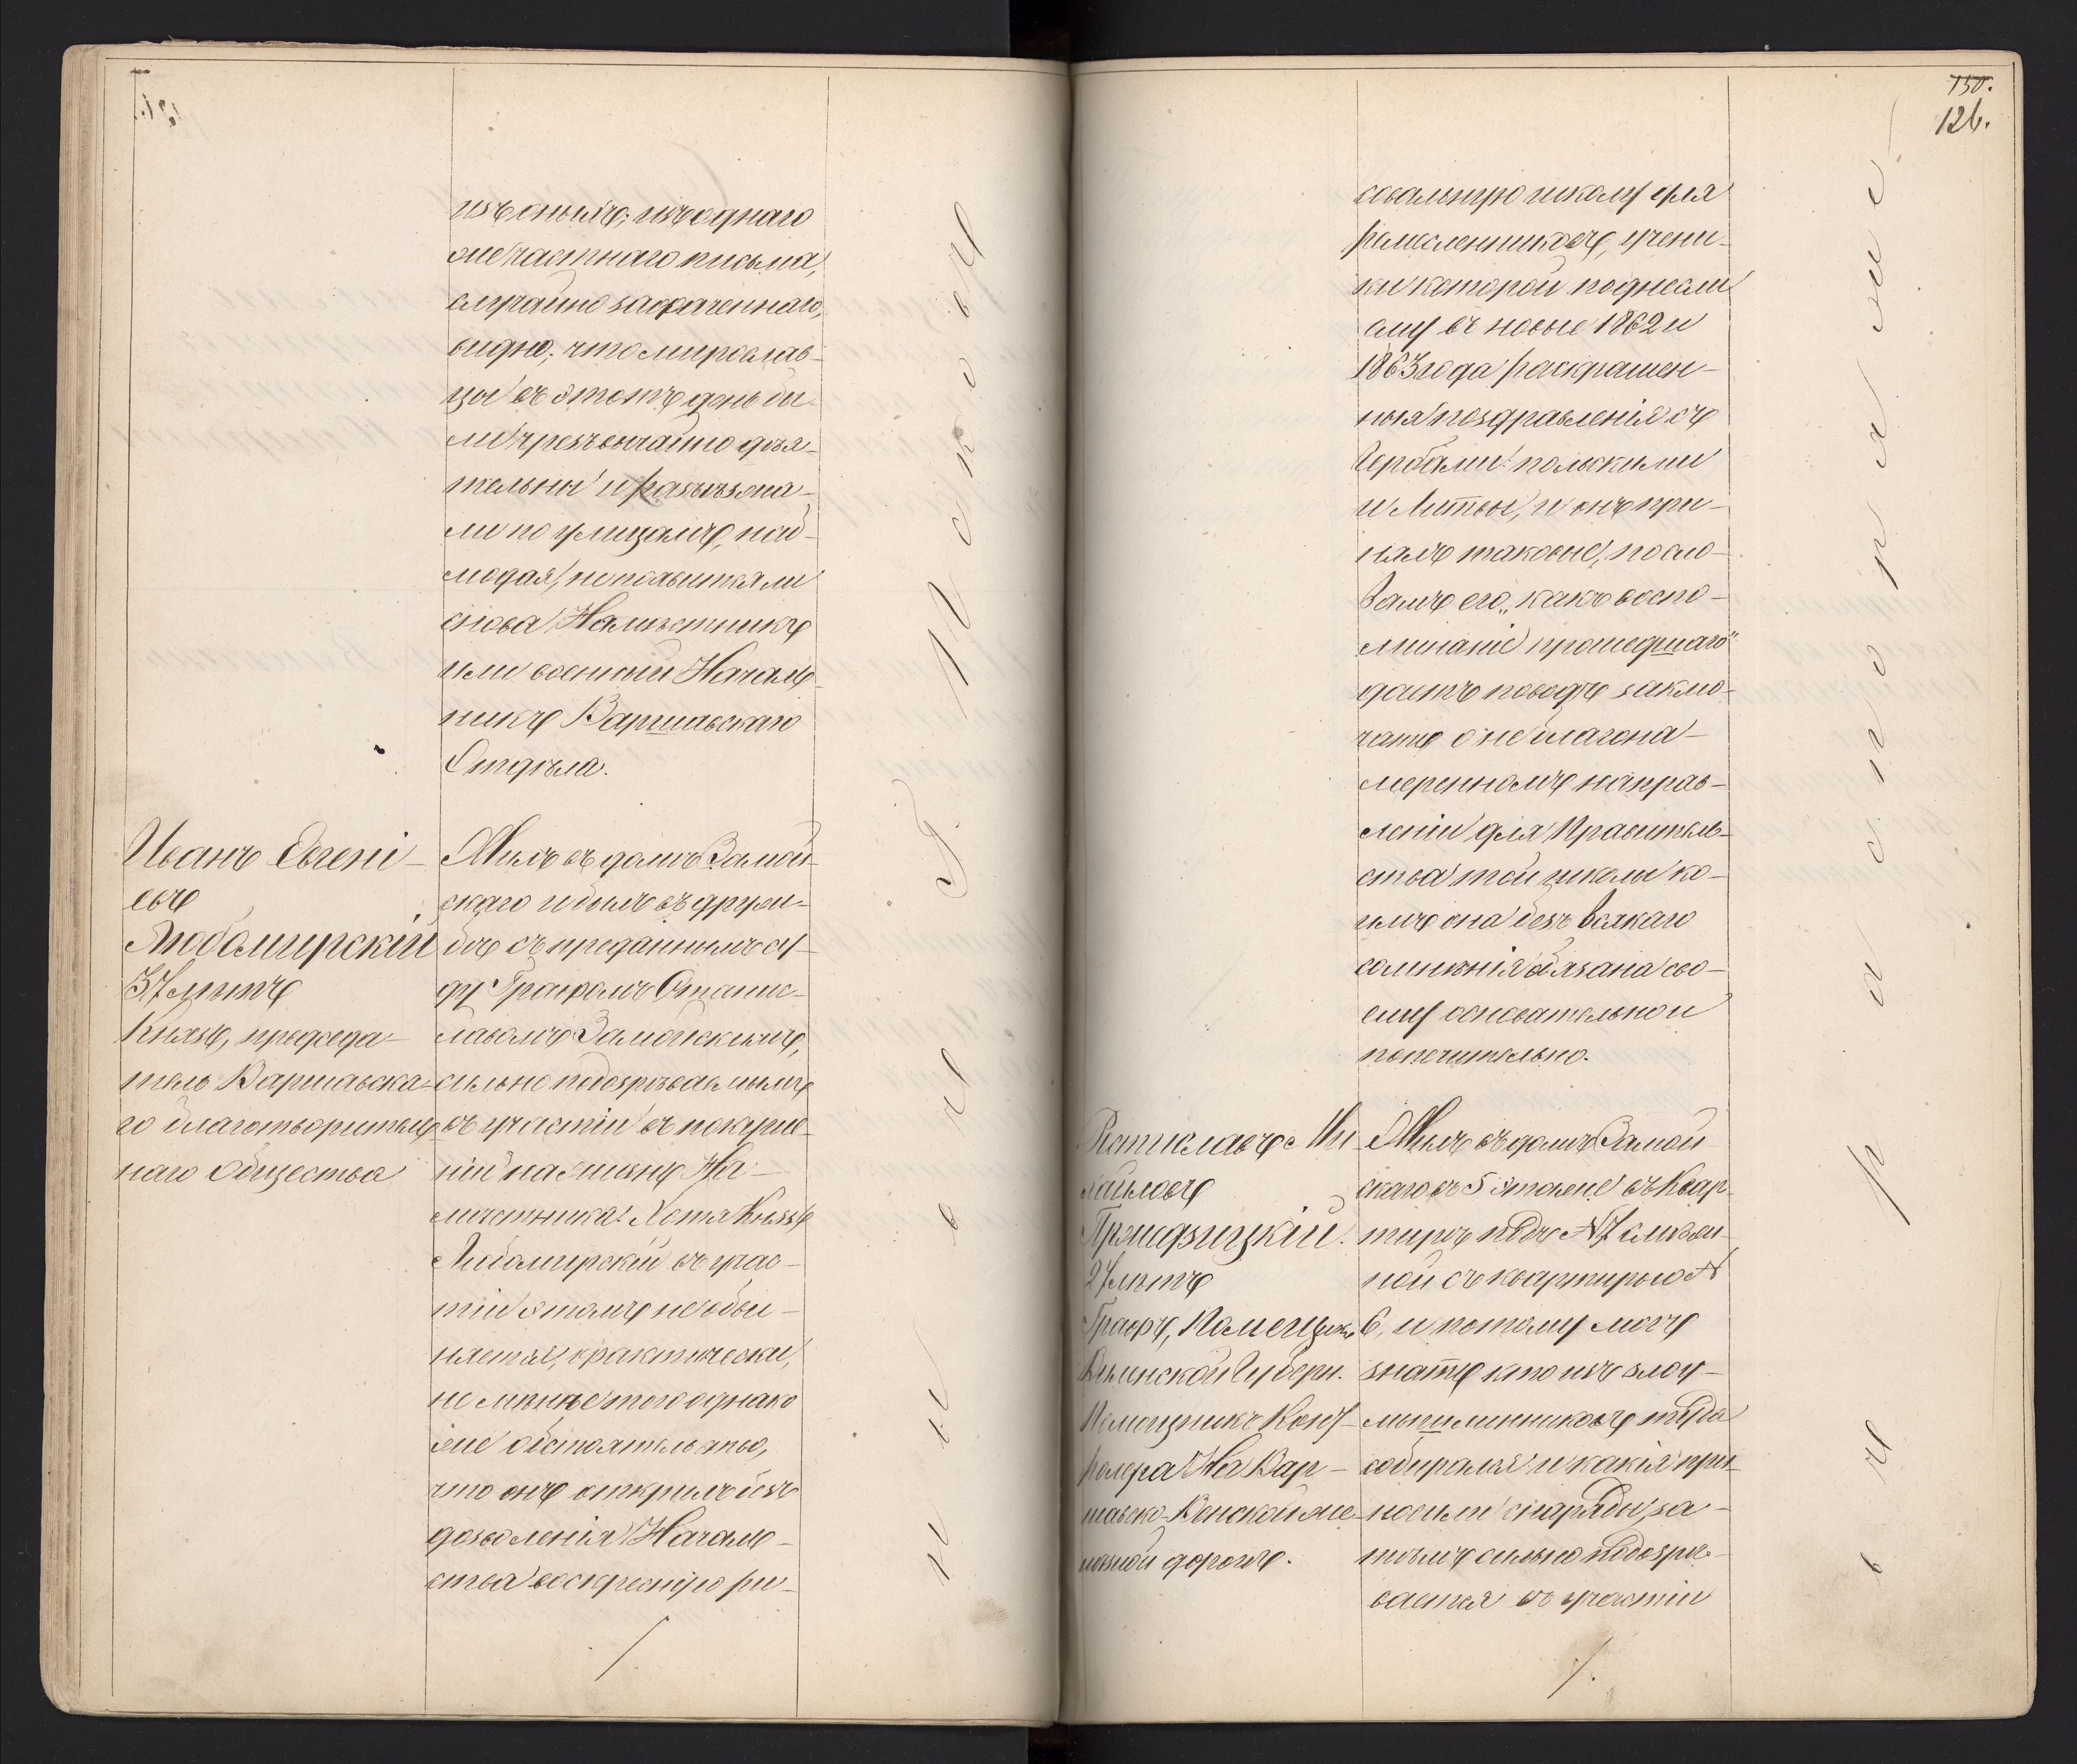 изъ оныхъ; изъ однаго
же частнаго письма,
случайно захваченнаго,
видно, что мирослав-
цы въ этотъ день бы-
ли чрезвычайно дѣя-
тельны и разъѣзжа-
ли по улицамъ, под-
жидая, не появится ли
снова Намѣстникъ
или военный Началь-
никъ Варшавскаго
Отдѣла.
Иванъ Евгені-
евъ
Любомирскій
37 лѣтъ
Князь, председа-
тель Варшавска-
го благотворитель-
наго Общества
Жилъ въ домѣ Замой-
скаго и былъ въ друж-
бѣ съ преданнымъ су-
ду Графомъ Станис-
лавомъ Замойскимъ,
сильно подозрѣваемымъ
въ участіи въ покуше-
ніи на жизнь На-
мѣстника. Хотя Князь
Любомирскій въ учас-
тіи этомъ не обви-
няется, фактически,
не менѣе того однако
же обстоятельство,
что онъ открылъ безъ
дозволенія Началь-
ства воскресную ри-
150.
126.
совальную школу для
ремесленниковъ, учени-
ки которой поднесли
ему въ новые 1862 и
1863 года раскрашен-
ныя поздравленія съ
Гербами: польскими
и Литвы, и онъ при-
нялъ таковые, по сло-
вамъ его, „какъ воспо-
минаніе прошедшаго"
даетъ поводъ заклю-
чать о неблагона-
меренномъ направ-
леніи для Правитель-
ства той школы ко-
имъ она безъ всякаго
сомнѣнія обязана сво-
ему основательной
попечительно.
Михайловъ
27 лѣтъ
Графъ, Помещикъ
Виленской Губерн.
Помощникъ Конт-
ролера На Вар-
шавско-Венской же-
лѣзной дорогѣ.
Жилъ въ домѣ Замой
скаго въ 5 этаже въ Квар-
тирѣ подъ № 7 смѣж-
ной съ квартирою №
6, и потому могъ
знать кто изъ злоу-
мышленниковъ туда
собирался и какія при-
носили снаряды, за-
тѣмъ сильно подозрѣ-
вается въ участіи